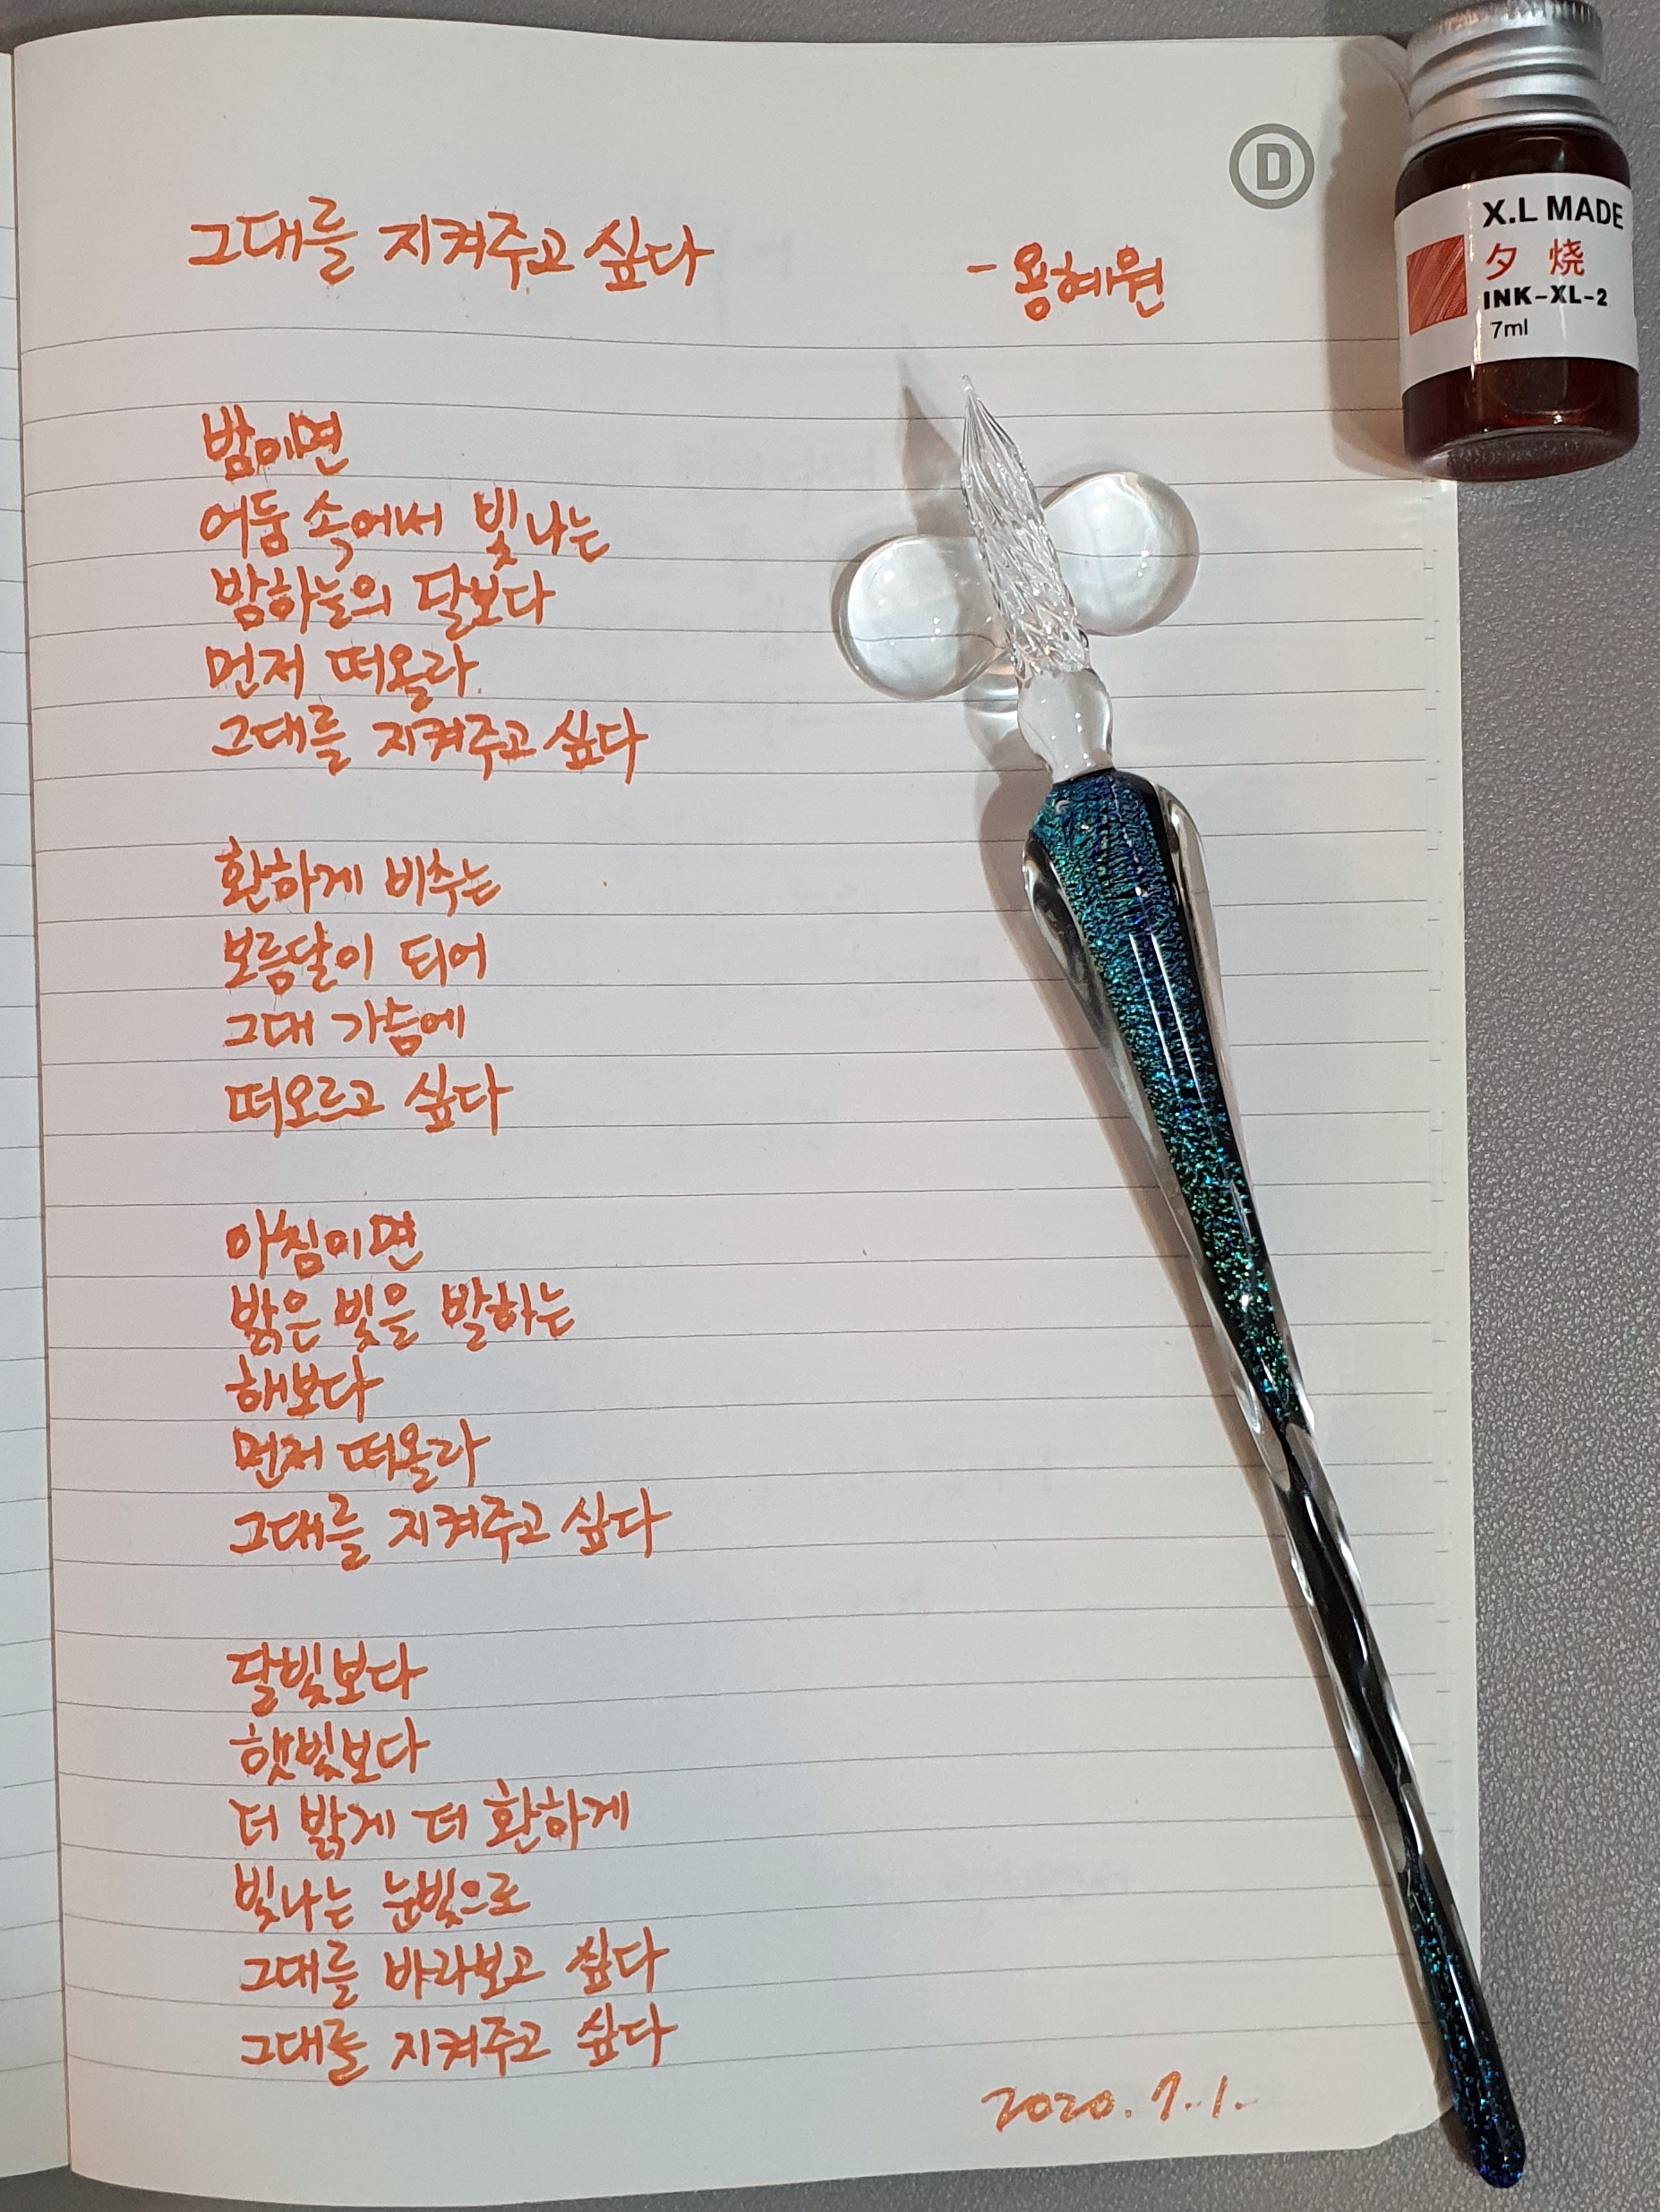 그대를 지켜주고 싶다
- 용혜원
밤이면
어둠 속에서 빛나는
밤하늘의 달보다
먼저 떠올라
그대를 지켜주고 싶다
환하게 비추는
보름달이 되어
그대 가슴에
떠오르고 싶다
아침이면
밝은 빛을 발하는
해보다
먼저 떠올라
그대를 지켜주고 싶다
달빛보다
햇빛보다
더 밝게 더 환하게
빛나는 눈빛으로
그대를 바라보고 싶다
그대를 지켜주고 싶다
2020. 7. 1.
D
X.L MADE
夕 烧
INK-XL-2
7ml